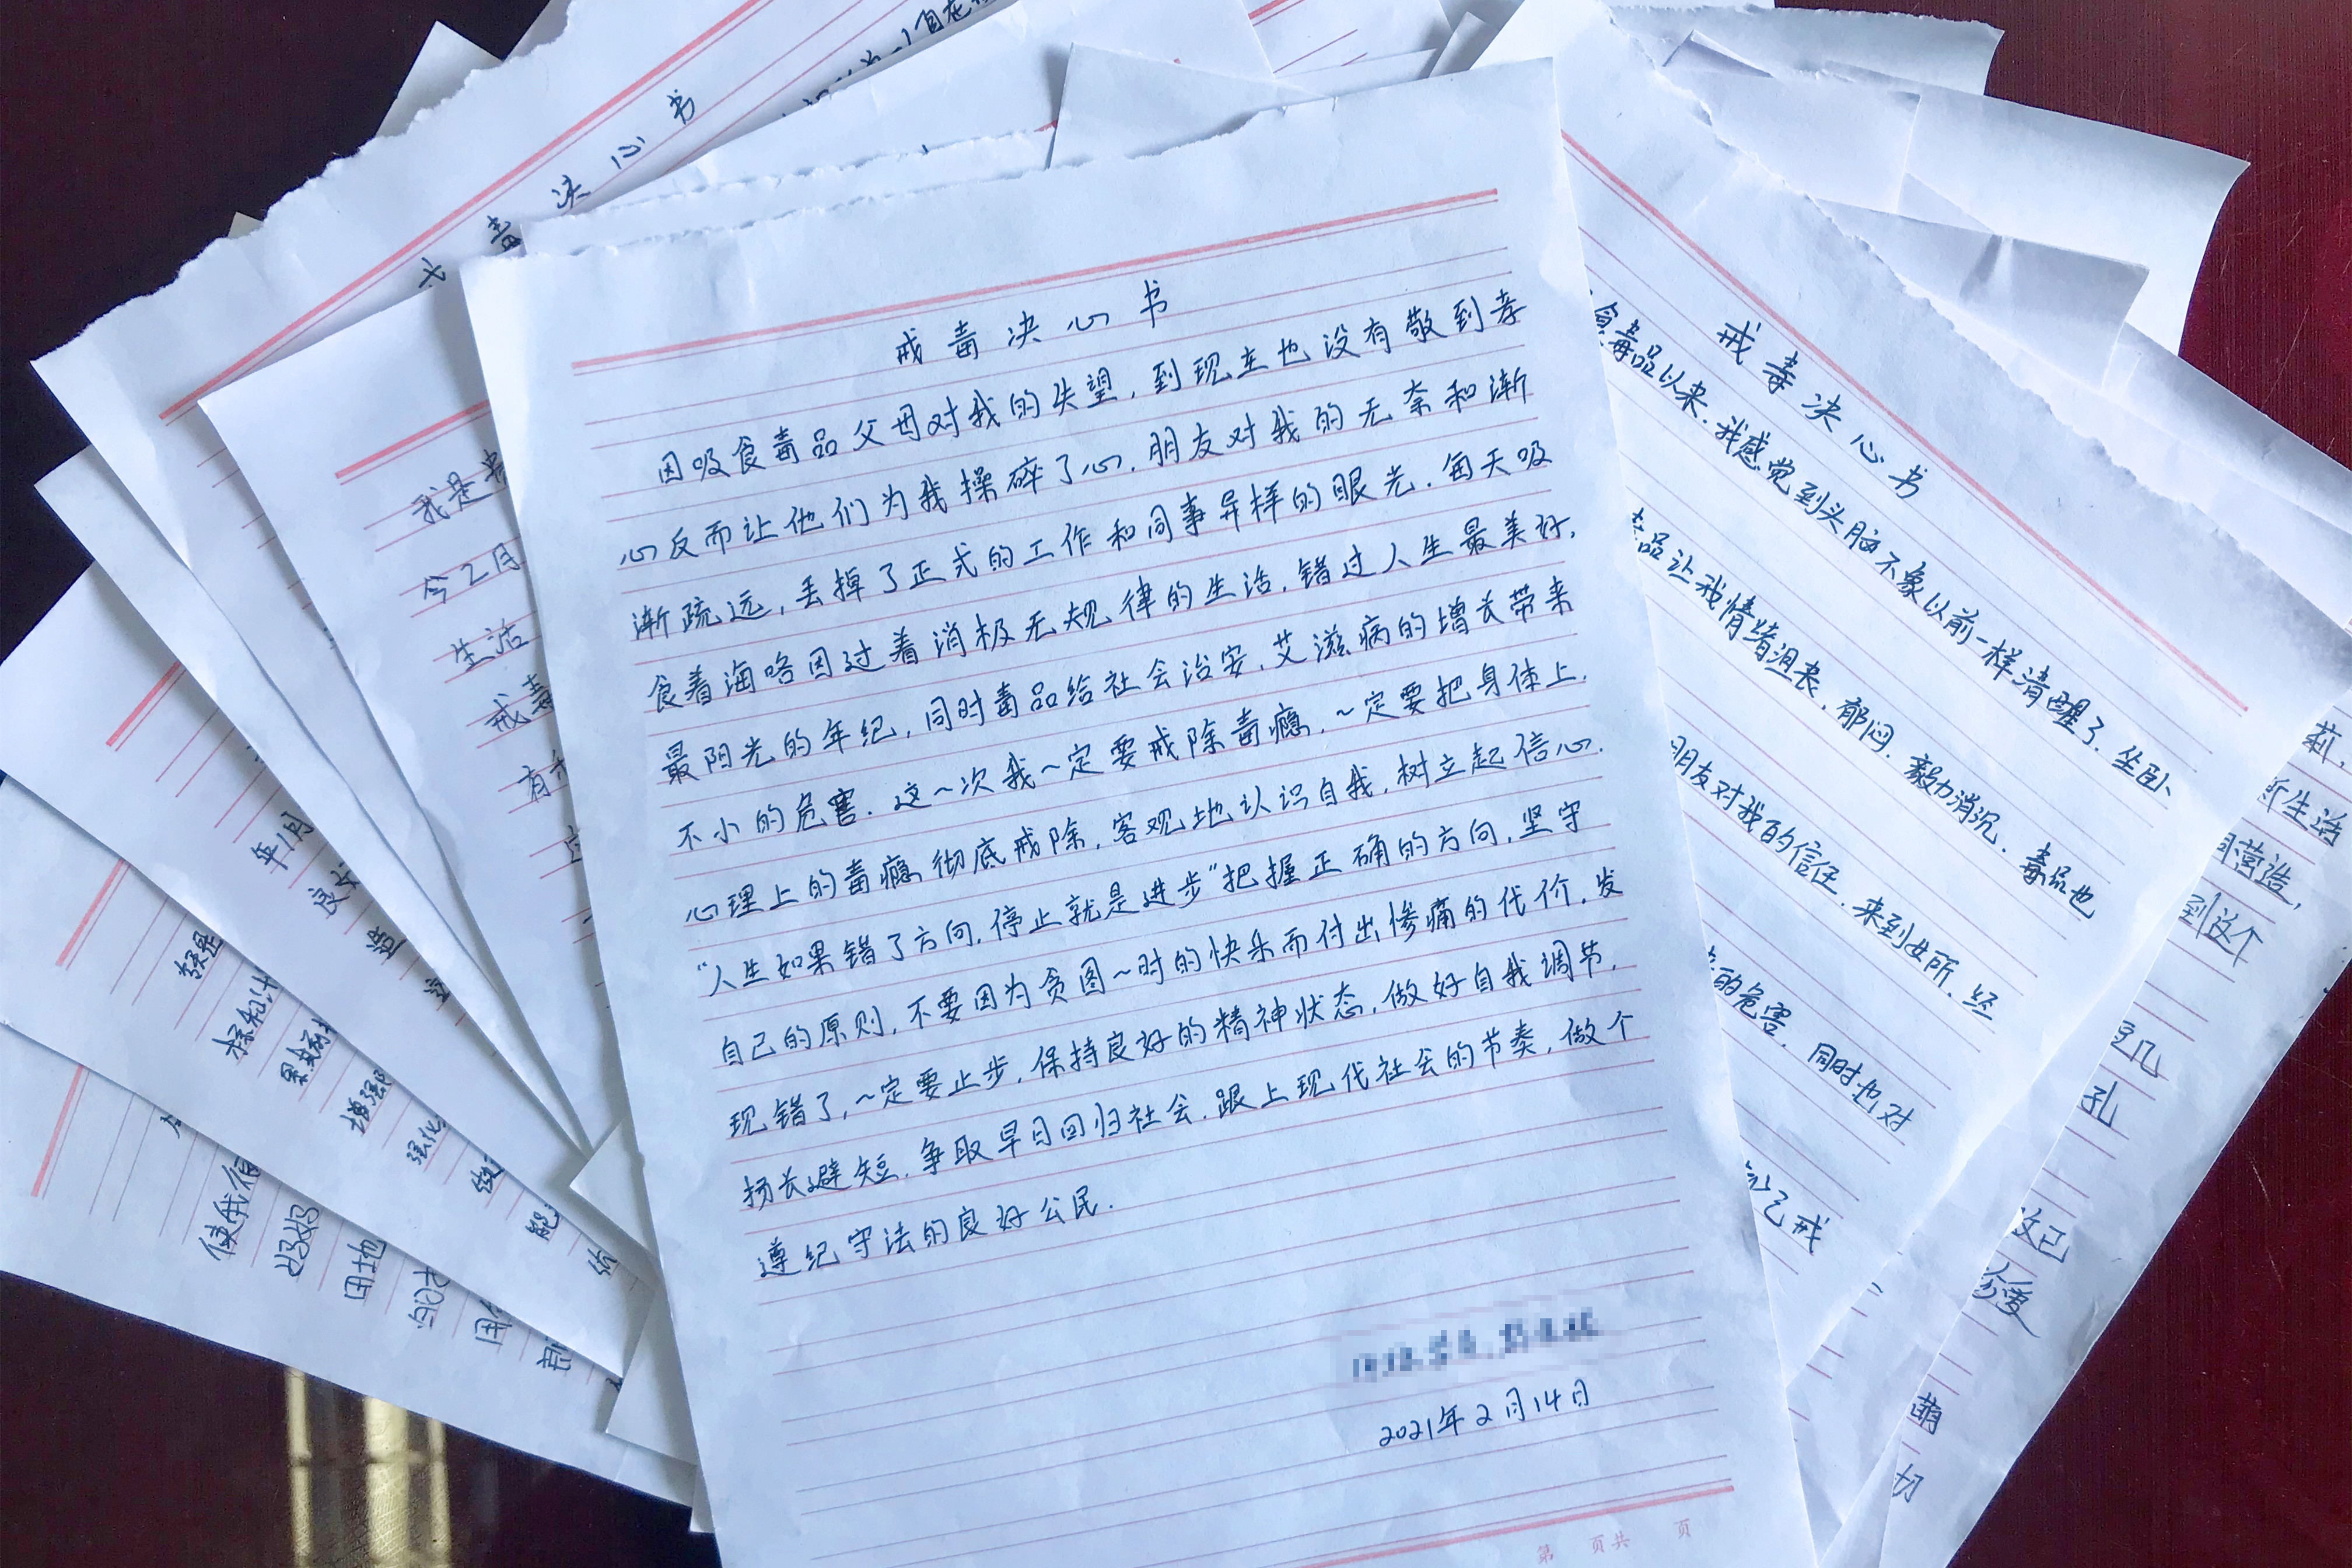 戒毒决心书
因吸食毒品父母对我的失望，到现在也没有敬到孝
心反而让他们为我操碎了心.朋友对我的无奈和渐
渐疏远，丢掉了正式的工作和同事异样的眼光.每天吸
食着海咯因过着消极无规律的生活，错过人生最美好，
最阳光的年纪，同时毒品给社会治安，艾滋病的增长带来
不小的危害.这~次我~定要戒除毒瘾，~定要把身体上.
心理上的毒瘾彻底戒除，客观地认识自我，树立起信心.
“人生如果错了方向，停止就是进步”把握正确的方向，坚守
自己的原则，不要因为贪图~时的快乐而付出惨痛的代价.发
现错了，~定要止步，保持良好的精神状态，做好自我调节，
扬长避短.争取早日回归社会.跟上现代社会的节奏，做个
遵纪守法的良好公民.
2021年2月14日
第 页共 页
戒毒决心书
食毒品以来.我感觉到头脑不象以前一样清醒了.坐卧
品让我情绪沮丧.郁闷.毅力消沉.毒品也
朋友对我的信任.来到女所.经
的危害.同时也对
戒
毒决心书
我是
今2月
生活
戒毒
年1月
良好
增强
强化
使我
好好
田地
新生活
营造，
到这个
几
孔
萌
切